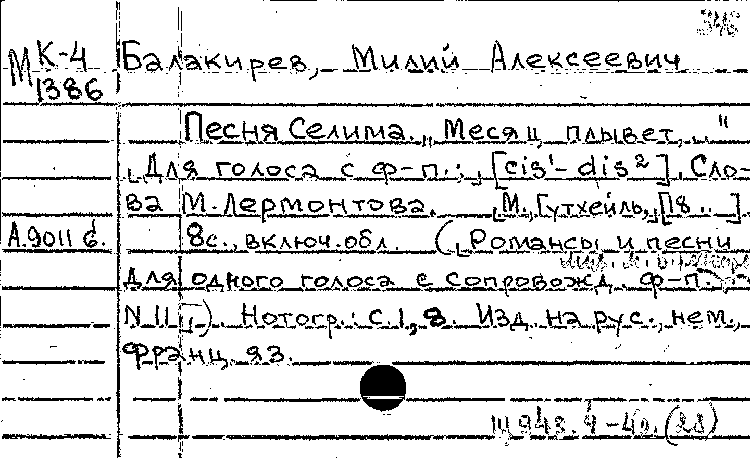 346
М К-4 Балакирев, Милий Алексеевич
1386
Песня Селима. „Месяц плывет..."
Для голоса с ф-п.: [cis¹-dis²]. Сло-
ва М. Лермонтова. М., Гутхейль, [18..].
А.9011 б. 8с., включ. обл. (Романсы и песни
для одного голоса с сопровожд. ф-п.
N 11). Нотогр.: с.1,8. Изд. на рус., нем.,
франц. яз.
Щ943.4-40.(28)